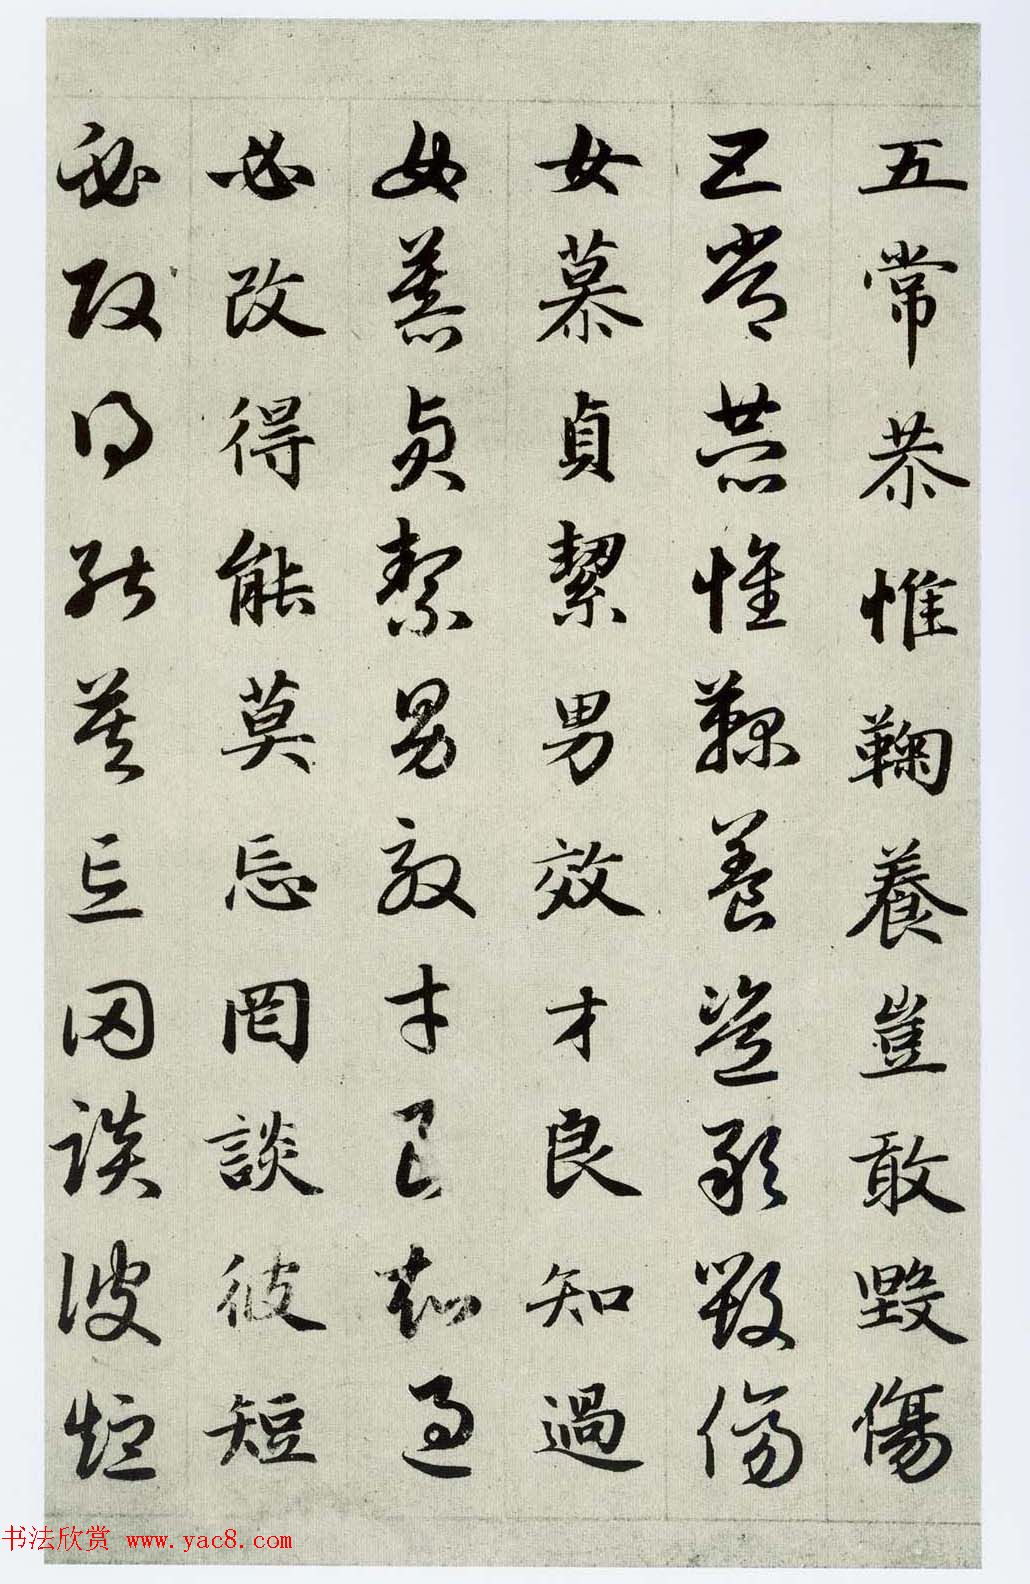 五常恭惟鞠養豈敢毀傷
五常恭惟鞠養豈敢毀傷
女慕貞絜男效才良知過
女慕貞絜男效才良知過
必改得能莫忘罔談彼短
必改得能莫忘罔談彼短
书法欣赏 www.yac8.com